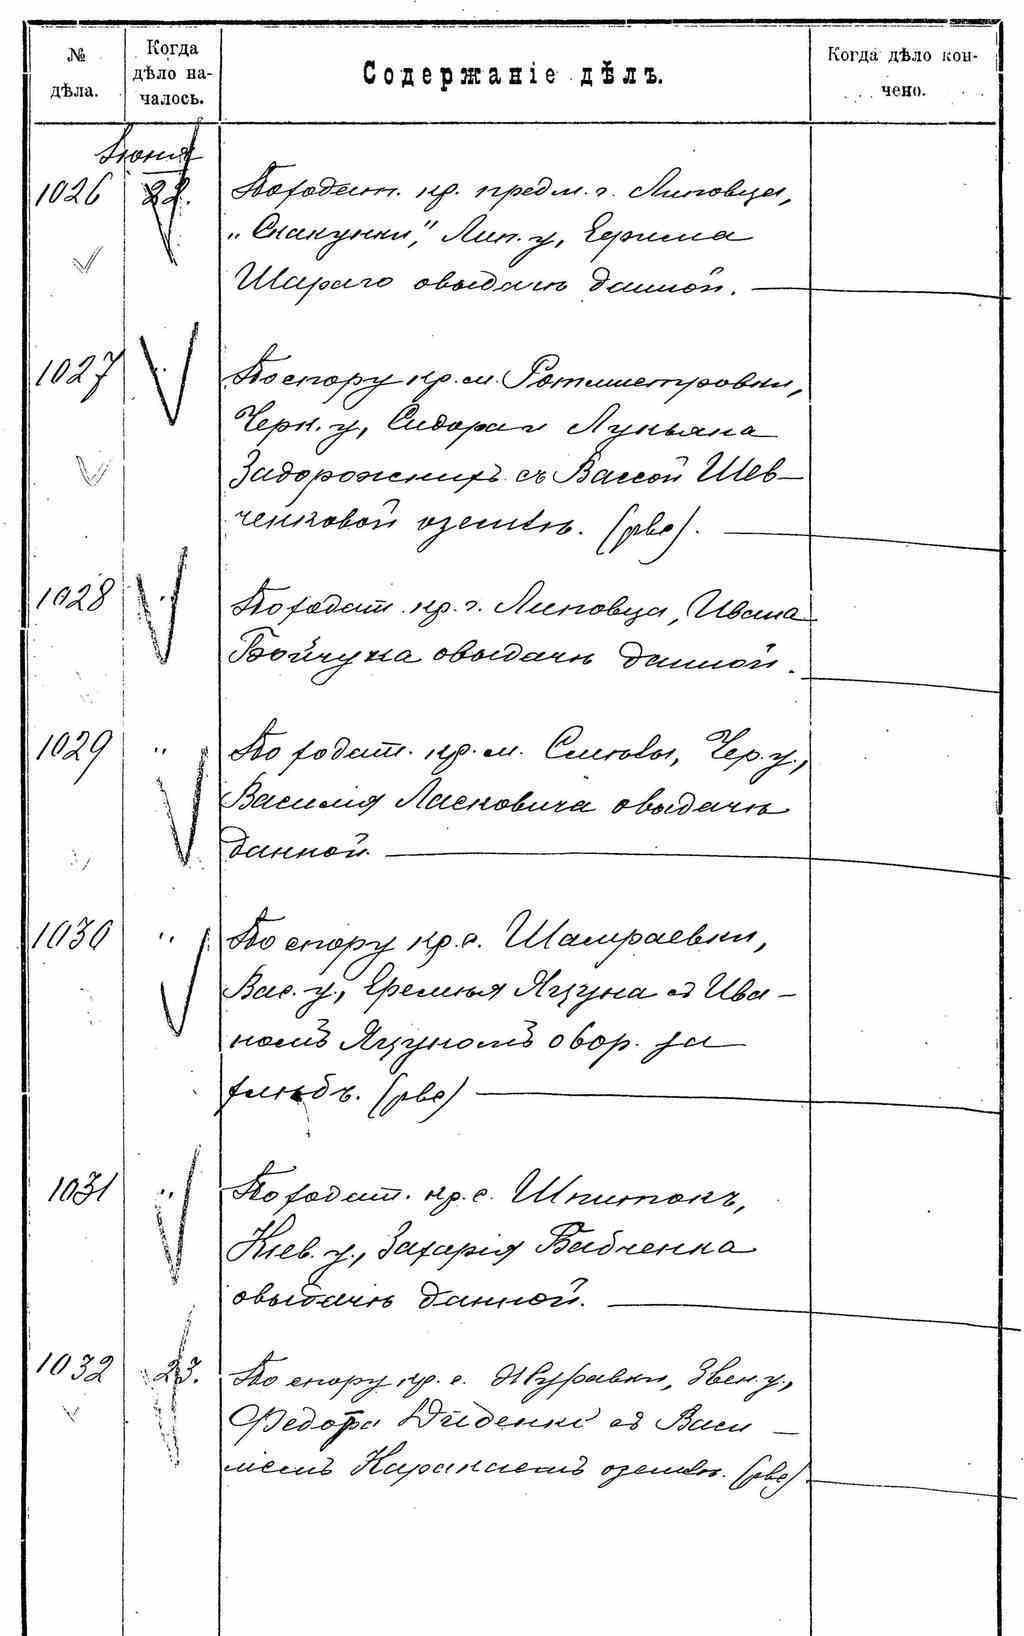 № дѣла.
Когда дѣло началось.
Содержаніе дѣлъ.
Когда дѣло кончено.
Іюня
1026 22. По ходат. кр. предм. г. Липовца,
„Скакунки", Лип. у, Ефима
Шараго о выдачѣ данной.
1027 " По спору кр. м. Ротмистровки,
Черк. у, Сидора и Лукьяна
Задорожнихъ съ Вассой Шев–
ченковой о землѣ. (рве).
1028 " По ходат. кр. г. Липовца, Ивана
Бойчука о выдачѣ данной.
1029 " По ходат. кр. м. Смѣлы, Чер. у.,
Василія Ласковича о выдачѣ
данной.
1030 " По спору кр. с. Шамраевки,
Вас. у., Еремѣя Яцуна съ Ива–
номъ Яцуномъ о вор. за
хлѣбъ. (рве)
1031 " По ходат. кр. с. Шпитокъ,
Кіев. у., Захарія Бабченка
о выдачѣ данной.
1032 23. По спору кр. с. Журавки, Звен. у.,
Федора Диденка съ Васи–
ліемъ Каракаемъ о землѣ. (рве)